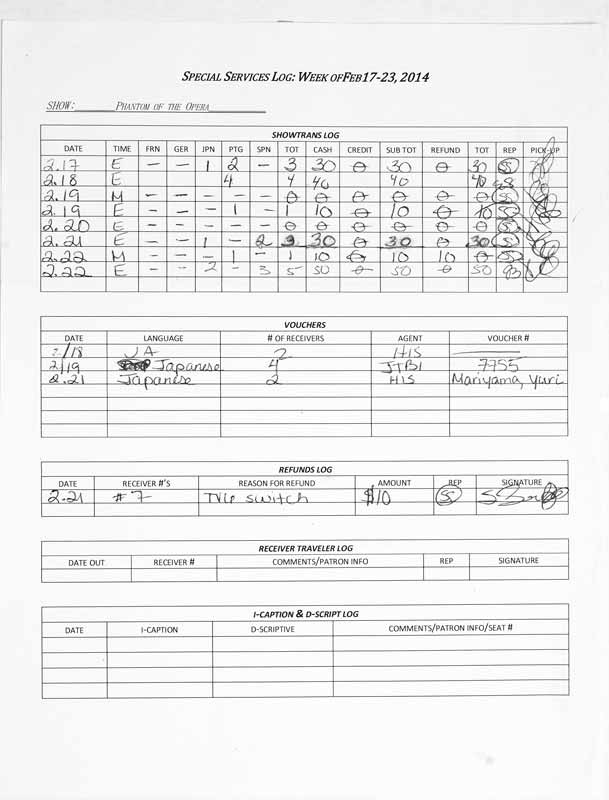 SPECIAL SERVICES LOG: WEEK OF FEB 17-23, 2014
SHOW: PHANTOM OF THE OPERA
SHOWTRANS LOG
DATE TIME FRN GER JPN PTG SPN TOT CASH CREDIT SUB TOT REFUND TOT REP PICK-UP
2.17 E - - 1 2 - 3 30 0 30 0 30 S
2.18 E 4 4 40 40 40
2.19 M - - - - - 0 0 0 0 0 0 S
2.19 E - - - 1 - 1 10 0 10 0 10 S
2.20 E - - - - - 0 0 0 0 0 0 S
2.21 E - - 1 - 2 3 30 0 30 0 30 S
2.22 M - - - 1 - 1 10 0 10 10 0 S
2.22 E - - 2 - 3 5 50 0 50 0 50
VOUCHERS
DATE LANGUAGE # OF RECEIVERS AGENT VOUCHER #
2/18 JA 2 HIS
2/19 Japanese 4 JTBI 7755
2.21 Japanese 2 HIS Mariyama, Yuri
REFUNDS LOG
DATE RECEIVER #'S REASON FOR REFUND AMOUNT REP SIGNATURE
2.21 #7 switch $10 S
RECEIVER TRAVELER LOG
DATE OUT RECEIVER # COMMENTS/PATRON INFO REP SIGNATURE
I-CAPTION & D-SCRIPT LOG
DATE I-CAPTION D-SCRIPTIVE COMMENTS/PATRON INFO/SEAT #